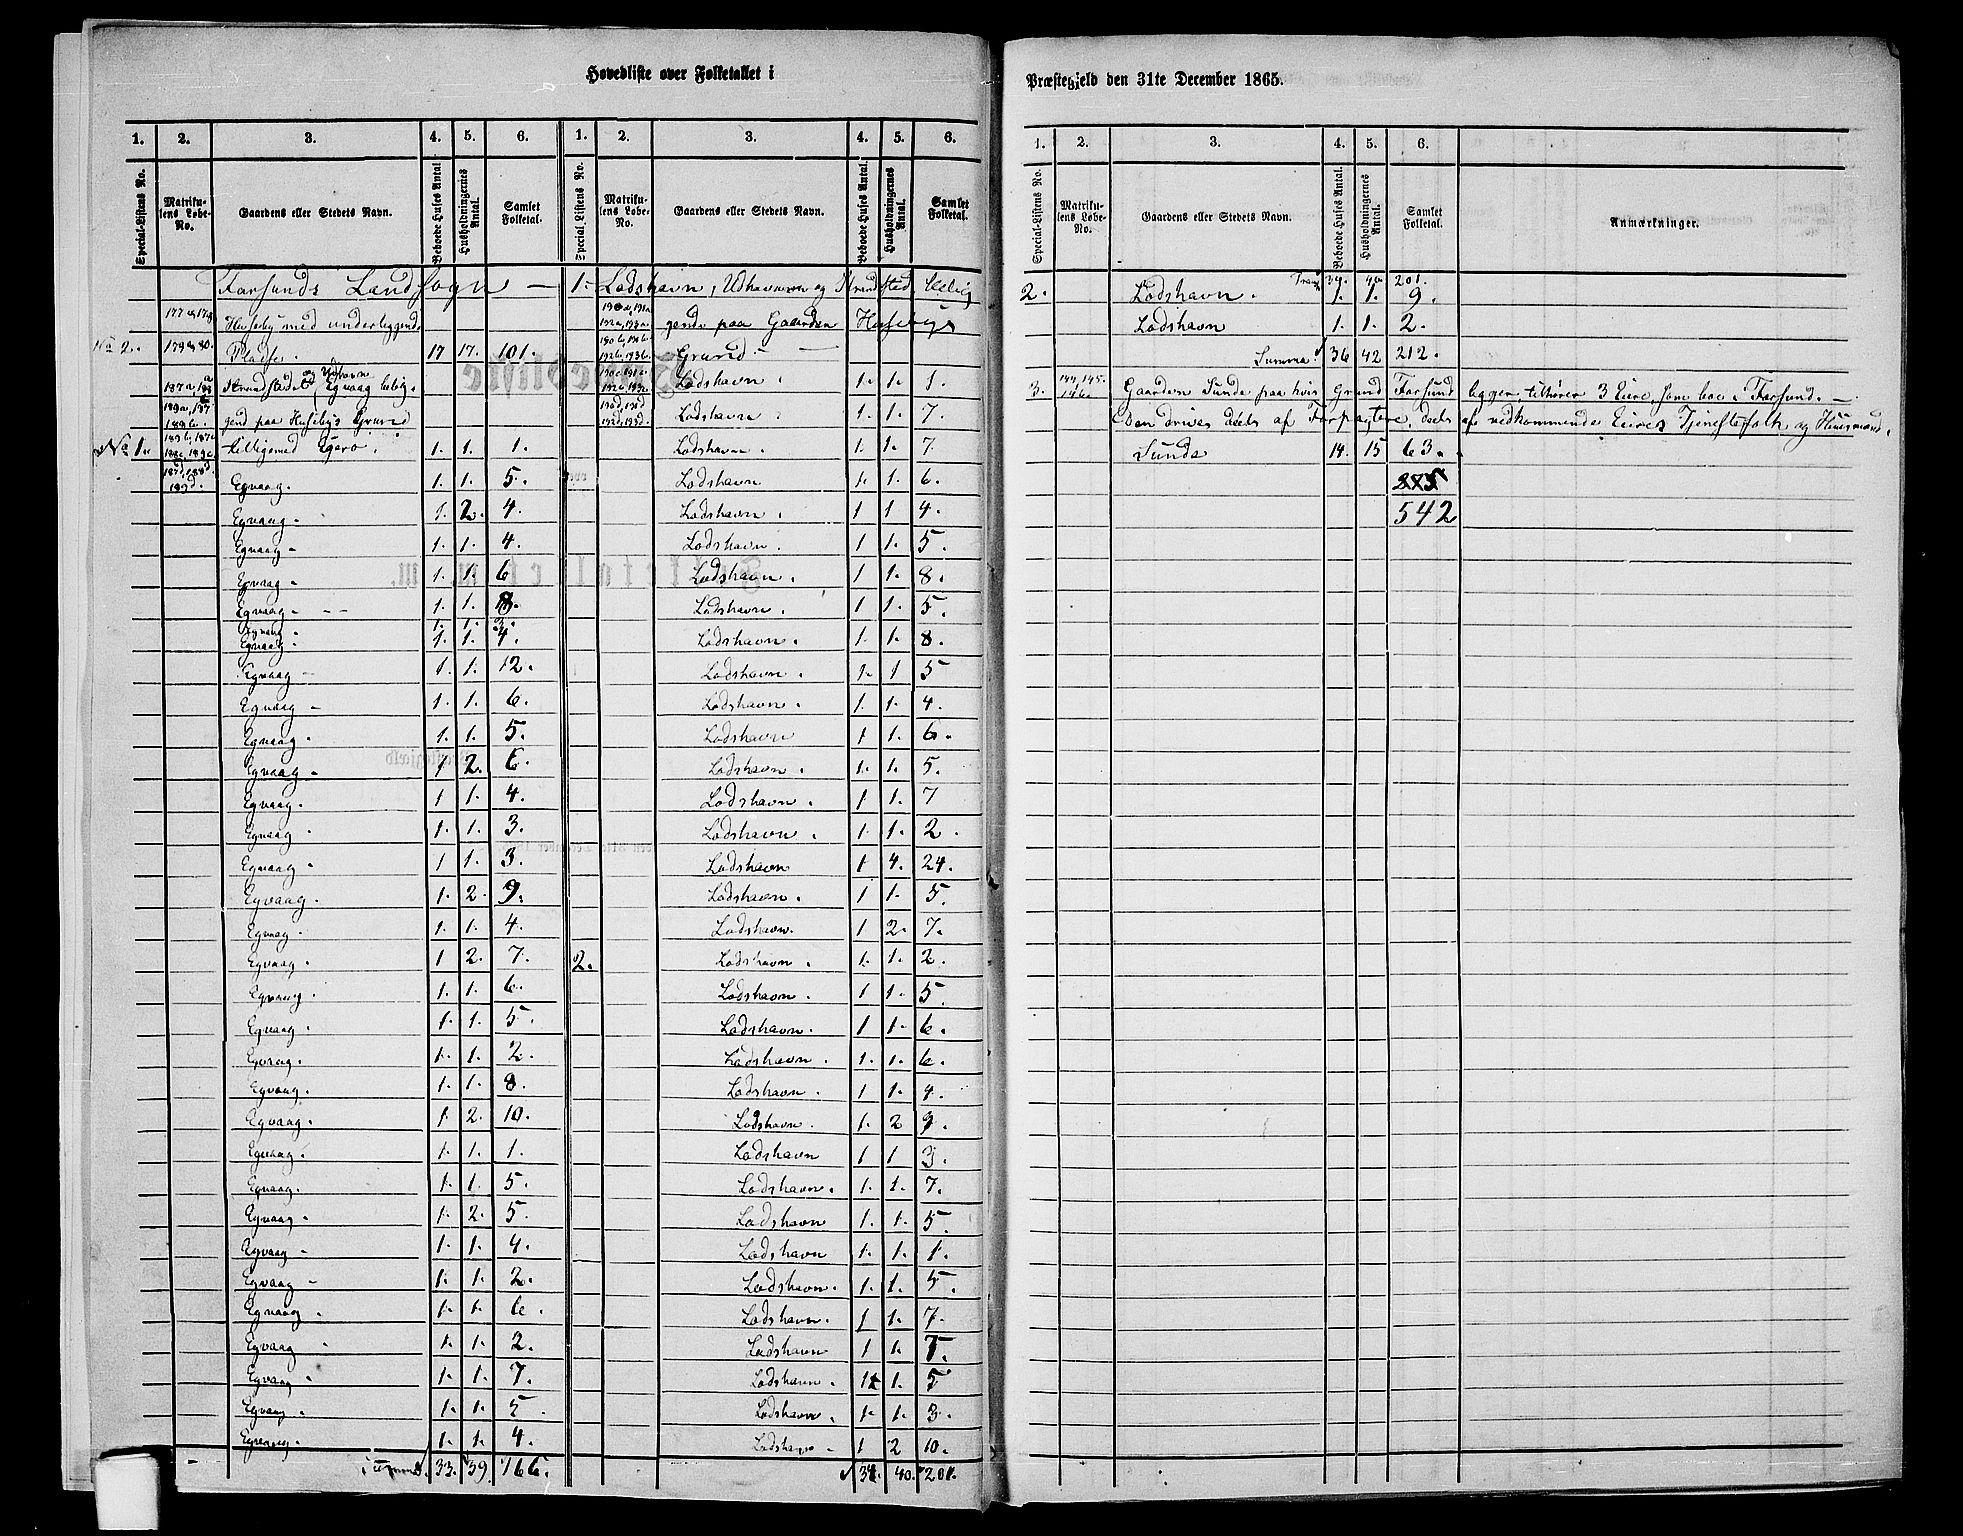 Hovedliste over Folketallet i
1. 2. 3. 4. 5. 6. 1. 2. 3. 4. 5. 6.
Special-Listens No. Matrikulens Løbe-No. Gaardens eller Stedets Navn. Beboede Huses Antal. Husholdningernes Antal. Samlet Folketal. Special-Listens No. Matrikulens Løbe-No. Gaardens eller Stedets Navn. Beboede Huses Antal. Husholdningernes Antal. Samlet Folketal.
Farsunds Landsogn —
177 a, 178 Huseby med underliggende
No 2. 179 a, 80. Pladse. 17 17. 101.
Strandstedet og Udhavn Egvaag belig-
gend paa Husebys Grund
No 1. tilligemed Egerö. 1. 1. 1.
Egvaag. 1. 1. 5.
Egvaag. 1. 2. 4.
Egvaag — 1. 1. 4.
Egvaag — 1. 1. 6
Egvaag — 1. 1. 8.
Egvaag 1. 1. 3.
Egvaag. 1. 1. 4.
Egvaag — 1. 1. 12.
Egvaag — 1. 1. 6.
Egvaag. 1. 1. 5.
Egvaag. 1 2. 6.
Egvaag. 1 1. 4.
Egvaag. 1. 1. 3.
Egvaag. 1 1. 3.
Egvaag. 1. 2. 9.
Egvaag. 1. 1. 4
Egvaag. 1 2. 7.
Egvaag. 1. 1. 6.
Egvaag. 1. 1. 5.
Egvaag. 1. 1. 2.
Egvaag. 1. 1. 8.
Egvaag. 1. 2. 10.
Egvaag. 1. 1. 1.
Egvaag. 1. 1. 5.
Egvaag. 1. 2. 5.
Egvaag — 1. 1. 4.
Egvaag — 1. 1. 2.
Egvaag. 1. 1. 6.
Egvaag 1. 1. 2.
Egvaag. 1. 1. 7.
Egvaag. 1. 1. 5.
Egvaag. 1. 1. 4.
Summa. 33. 39. 166.
1. Lodshavn, Udhavn og Strandsted belig
gende paa Gaarden Husebys
Grund —
Lodshavn. 1. 1. 1.
Lodshavn. 1. 1. 7.
Lodshavn. 1. 1. 7
Lodshavn 1. 1. 6.
Lodshavn. 1 1 4.
Lodshavn. 1 1. 5.
Lodshavn. 1 1. 8.
Lodshavn. 1 1. 5.
Lodshavn. 1. 1. 8.
Lodshavn. 1. 1 5
Lodshavn. 1 1. 4.
Lodshavn 1 1. 6.
Lodshavn. 1. 1. 5.
Lodshavn. 1 1. 7
Lodshavn. 1. 1. 2.
Lodshavn 1 4. 24.
Lodshavn. 1 1. 5.
Lodshavn. 1 2. 7.
2. Lodshavn. 1. 1. 2.
Lodshavn. 1 1. 5.
Lodshavn. 1 1. 6.
Lodshavn. 1. 1. 6.
Lodshavn. 1. 1. 4.
Lodshavn. 1. 2 9.
Lodshavn 1 1 3.
Lodshavn. 1. 1. 7.
Lodshavn 1. 1. 5.
Lodshavn 1. 1. 1.
Lodshavn. 1. 1. 5.
Lodshavn. 1 1. 7.
Lodshavn 1 1.
Lodshavn. 1 1. 5
Lodshavn. 1. 1. 3.
Lodshavn. 1 2 10.
34. 40. 201.
Præstegjeld den 31te December 1865.
1. 2. 3. 4. 5. 6.
Special-Listens No. Matrikulens Løbe-No. Gaardens eller Stedets Navn. Beboede Huses Antal. Husholdningernes Antal. Samlet Folketal. Anmærkninger.
34. 40 201.
2. Lodshavn. 1. 1. 9.
Lodshavn 1. 1. 2.
Summa. 36 42 212.
3. 144, 145. 146. Gaarden Sunde paa hvis Grund Farsund ligger, tilhører 3 Eiere, som boe i Farsund. —
Den drives deels af Forpagtere, deels af vedkommende Eieres Tjenestefolk og Huusmænd.
Sunde 14. 15 63.
542